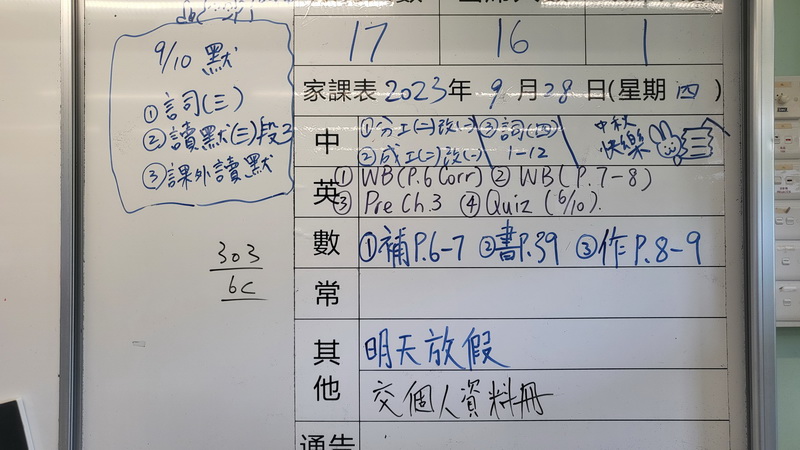 9/10 默
①詞(三)
②讀默(三)段3
③課外讀默
303
6C
17 16 1
家課表 2023年 9月28日(星期四)
中 ①分工(二)改(一) ③詞(四)
②成工(二)改(一) 1-12
中秋
快樂
英 ① WB(P.6 Corr) ② WB(P.7-8)
③ Pre Ch.3 ④ Quiz (6/10).
數 ①補P.6-7 ②書P.39 ③作P.8-9
常
其他 明天放假
交個人資料冊
通告